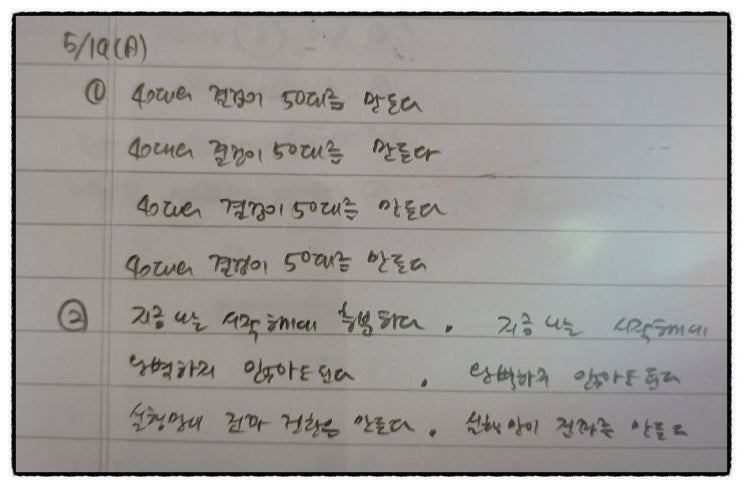 5/19(月)
① 40대의 결정이 50대를 만든다
40대의 결정이 50대를 만든다
40대의 결정이 50대를 만든다
40대의 결정이 50대를 만든다
② 지금 나는 시작해도 충분하다. 지금 나는
완벽하지 않아도 된다. 완벽하지 않아도 된다
실행만이 만든다. 실행만이 만든다